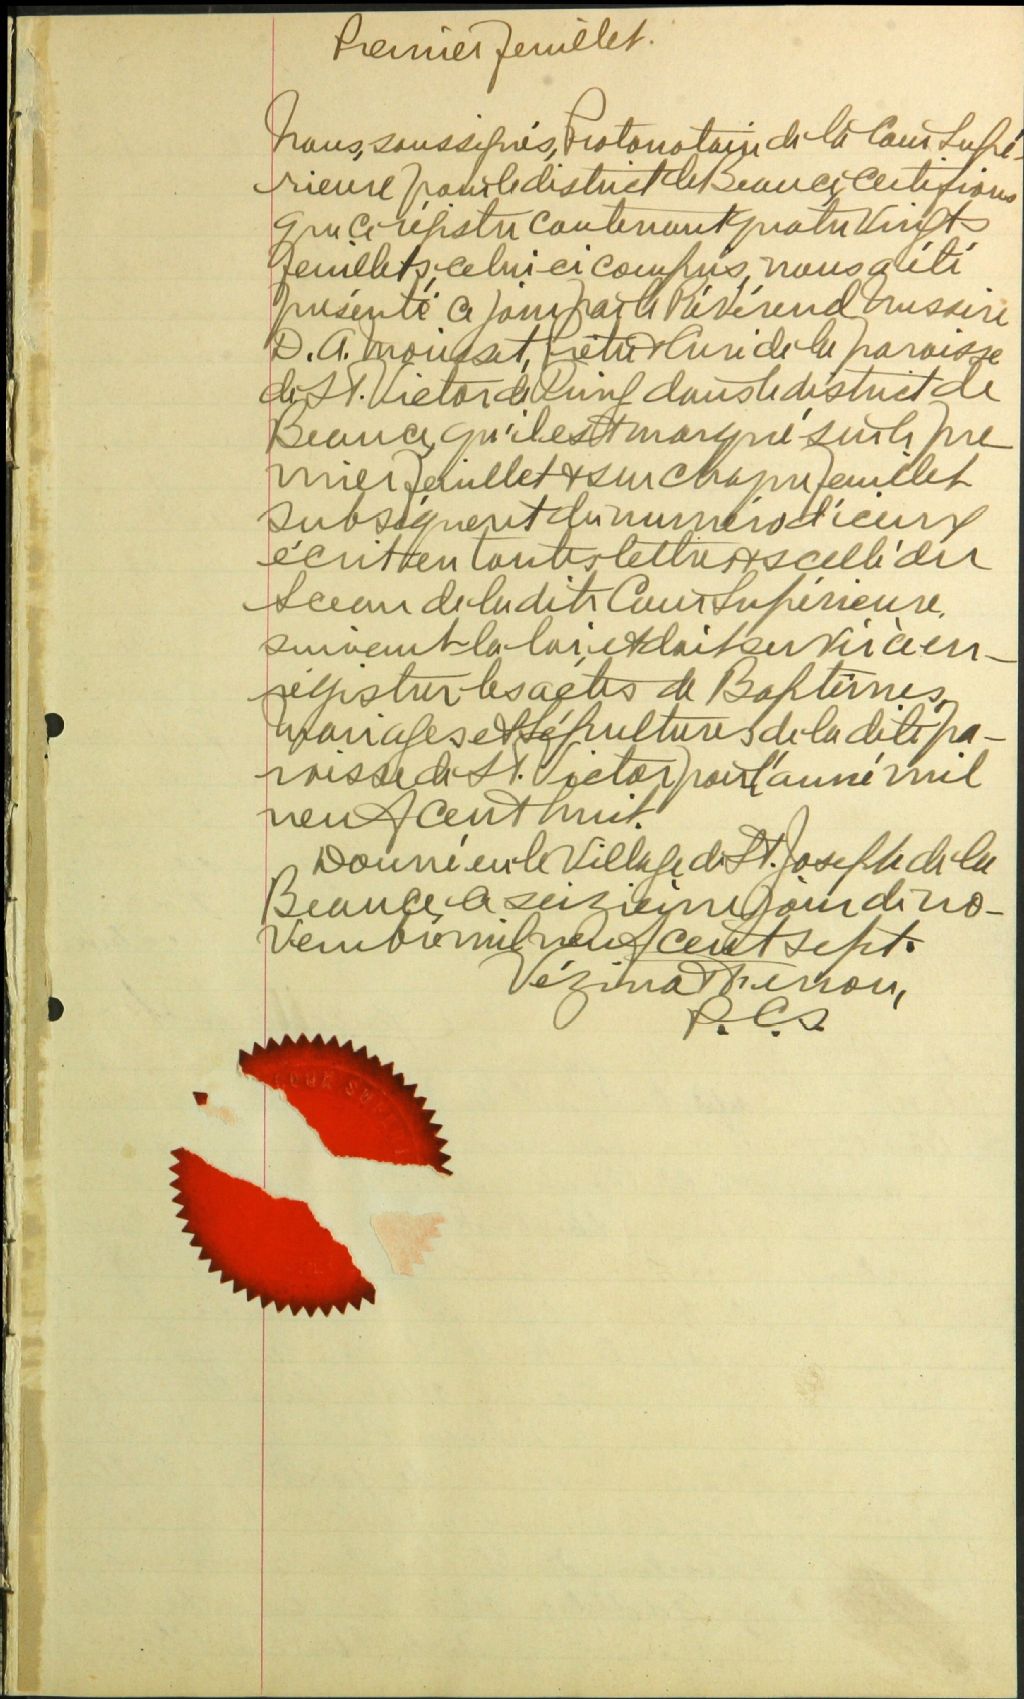 Premier feuillet.
Nous, soussignés, Protonotaire de la Cour Supé-
rieure pour le district de Beauce, certifions
que ce régistre contenant quatre Vingts
feuillets, celui ci compris, nous a été
présenté ce jour par le Révérend Messire
D. A. Mousset, Prêtre & Curé de la paroisse
de St. Victor de Tring dans le district de
Beauce, qu'il est marqué sur le pre
mier feuillet & sur chaque feuillet
subséquent du numéro d'iceux
écrit en toutes lettres & scellé du
Sceau de la dite Cour Supérieure,
suivant la loi, & doit servir à en-
régistrer les actes de Baptêmes,
Mariages et Sépultures de la dite pa-
roisse de St. Victor pour l'année mil
neuf cent huit.
Donné en le Village de St. Joseph de la
Beauce, ce seizième jour de no-
vembre mil neuf cent sept.
Vézina & Ferron,
P. C. S.
COUR SUPÉRI